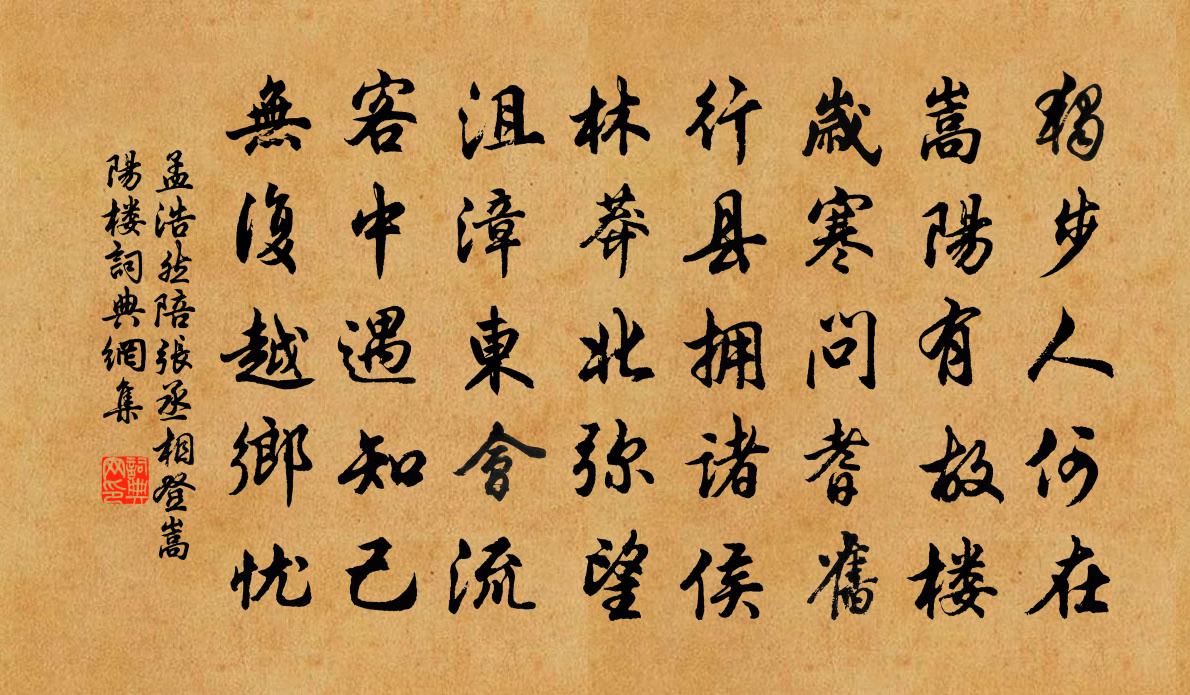 獨步人何在
嵩陽有故楼
歲寒問耆舊
行县拥诸侯
林莽北弥望
沮漳東會流
客中遇知己
無復越鄉忧
孟浩然陪張丞相登嵩
陽楼詞典網集
詞典網印